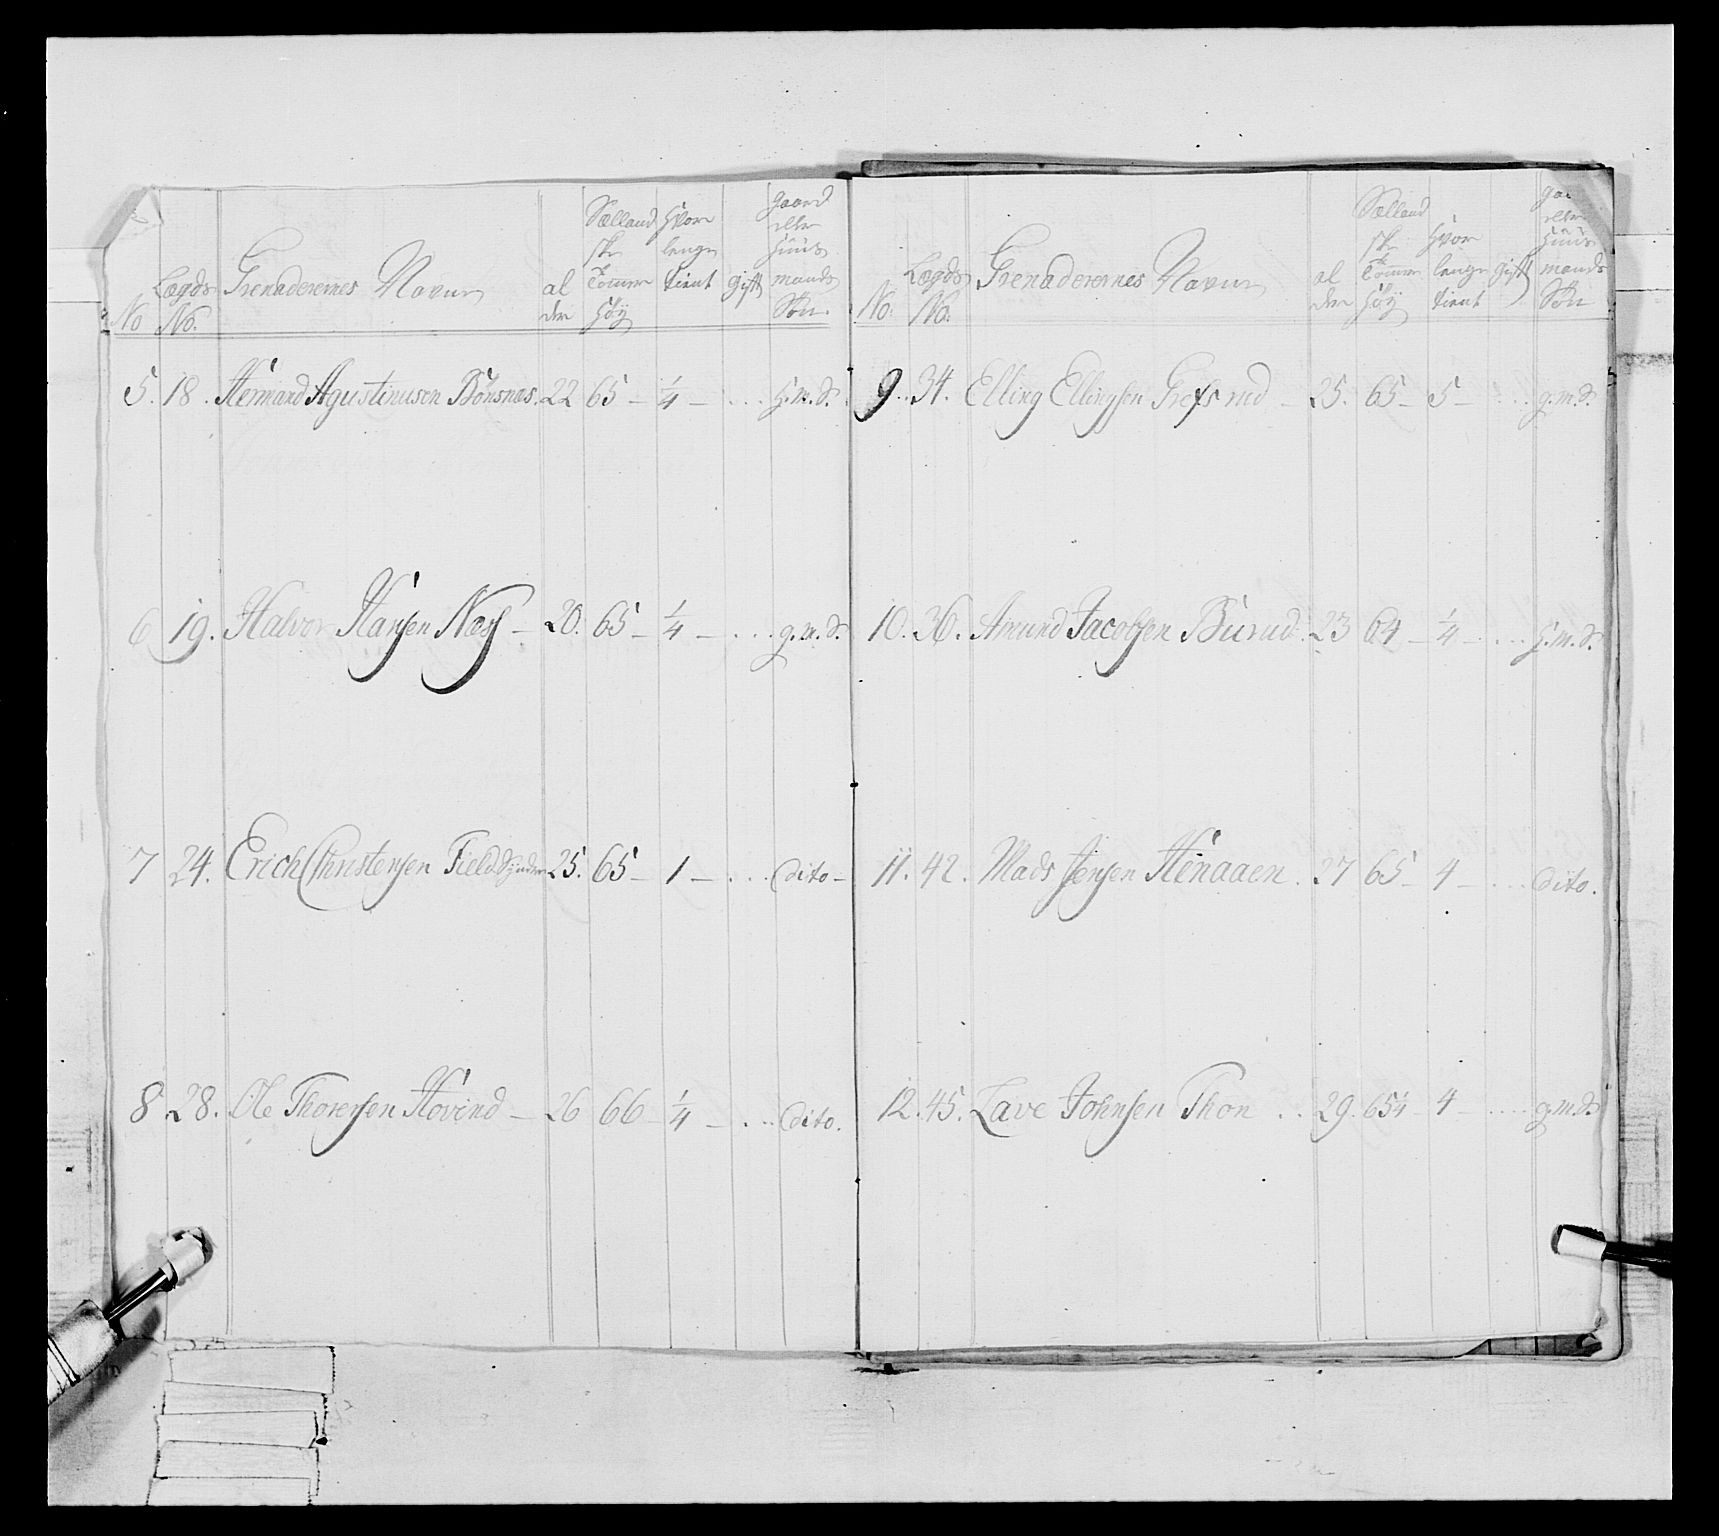 No
Lægds No.
Grenaderernes Navne
al der
Sællandske Tommer Høy
Hvor lenge tient
gift
gaard eller Huusmands Søn.
5. 18. Hermand Agustinusen Bønsnæs. 22 65 – ¼ – . . . H.m.S.
6 19. Halvor Hansen Næss – 20. 65 – ¼ – . . . g.m.S.
7 24. Erich Christensen Field 25. 65 – 1 – . . . Dito –
8 28. Ole Thoresen Hovind – 26 66 – ¼ – . . . Dito.
No.
Lægds No.
Grenaderernes Navne
al der
Sællandske Tommer Høy
Hvor lenge tient
gift
eller Huusmands Søn
9. 34. Elling Ellingsen Grefsrud – 25. 65 – 5 – . . . g.m.S.
10. 36. Amund Jacobsen Burud. 23 64 – ¼ – . . . H.m.S.
11. 42. Mads Jensen Henaaen. 27 65 – 4 – . . . Dito.
12. 45. Lave Johnsen Thon . . 29. 65¼ – 4 – . . . g.m.S.